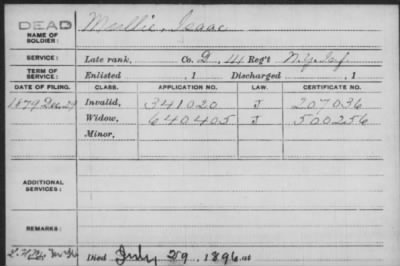 DEAD
NAME OF SOLDIER: Mullie, Isaac
SERVICE: Late rank, Co. D, 44 Reg't N.Y. Inf.
TERM OF SERVICE: Enlisted , 1 Discharged , 1
DATE OF FILING. CLASS. APPLICATION NO. LAW. CERTIFICATE NO.
1879 Dec. 29 Invalid, 341020 J 207036
Widow, 640405 J 500256
Minor,
ADDITIONAL SERVICES:
REMARKS:
Died July 29, 1896, at